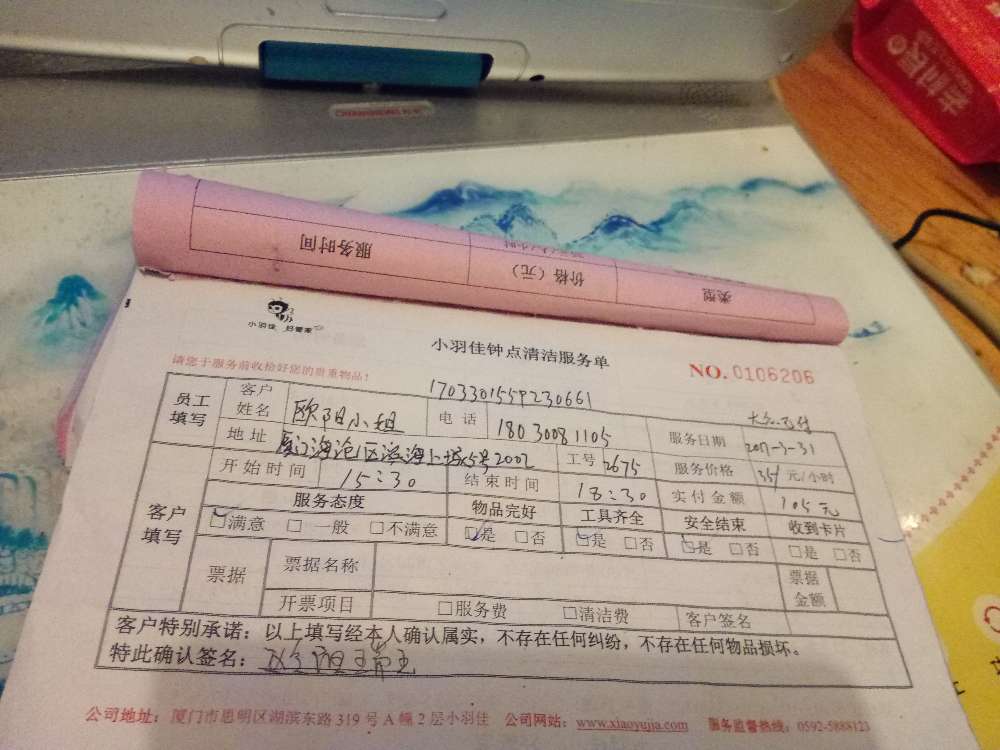 服务时间
价格（元）
类型
小羽佳 好管家
小羽佳钟点清洁服务单
请您于服务前收检好您的贵重物品！
NO. 0106206
1703301559230661
员工填写 客户姓名 欧阳小姐 电话 18030081105 服务日期 2017-3-31
地址 厦门海沧区 5号2002 工号 2675 服务价格 35 元/小时
开始时间 15:30 结束时间 18:30 实付金额 105元
客户填写 服务态度 物品完好 工具齐全 安全结束 收到卡片
☑满意 □一般 □不满意 ☑是 □否 ☑是 □否 ☑是 □否 □是 □否
票据 票据名称 票据金额
开票项目 □服务费 □清洁费 客户签名
客户特别承诺：以上填写经本人确认属实，不存在任何纠纷，不存在任何物品损坏。
特此确认签名：
公司地址：厦门市思明区湖滨东路319号A幢2层小羽佳 公司网站：www.xiaoyujia.com 服务监督热线：0592-5888123